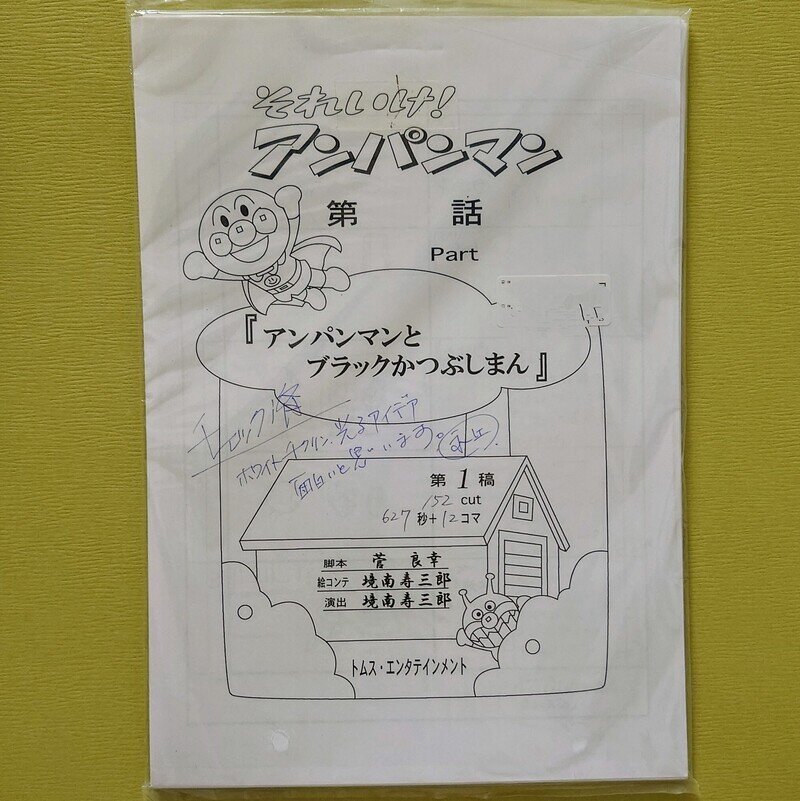 それいけ!
アンパンマン
第 話
Part
『アンパンマンと
ブラックかつぶしまん』
チェック済
ホワイトチクリン、光るアイデア
面白いと思います。
第1稿
152 cut
627秒+12コマ
脚本 菅 良幸
絵コンテ 境南寿三郎
演出 境南寿三郎
トムス・エンタテインメント